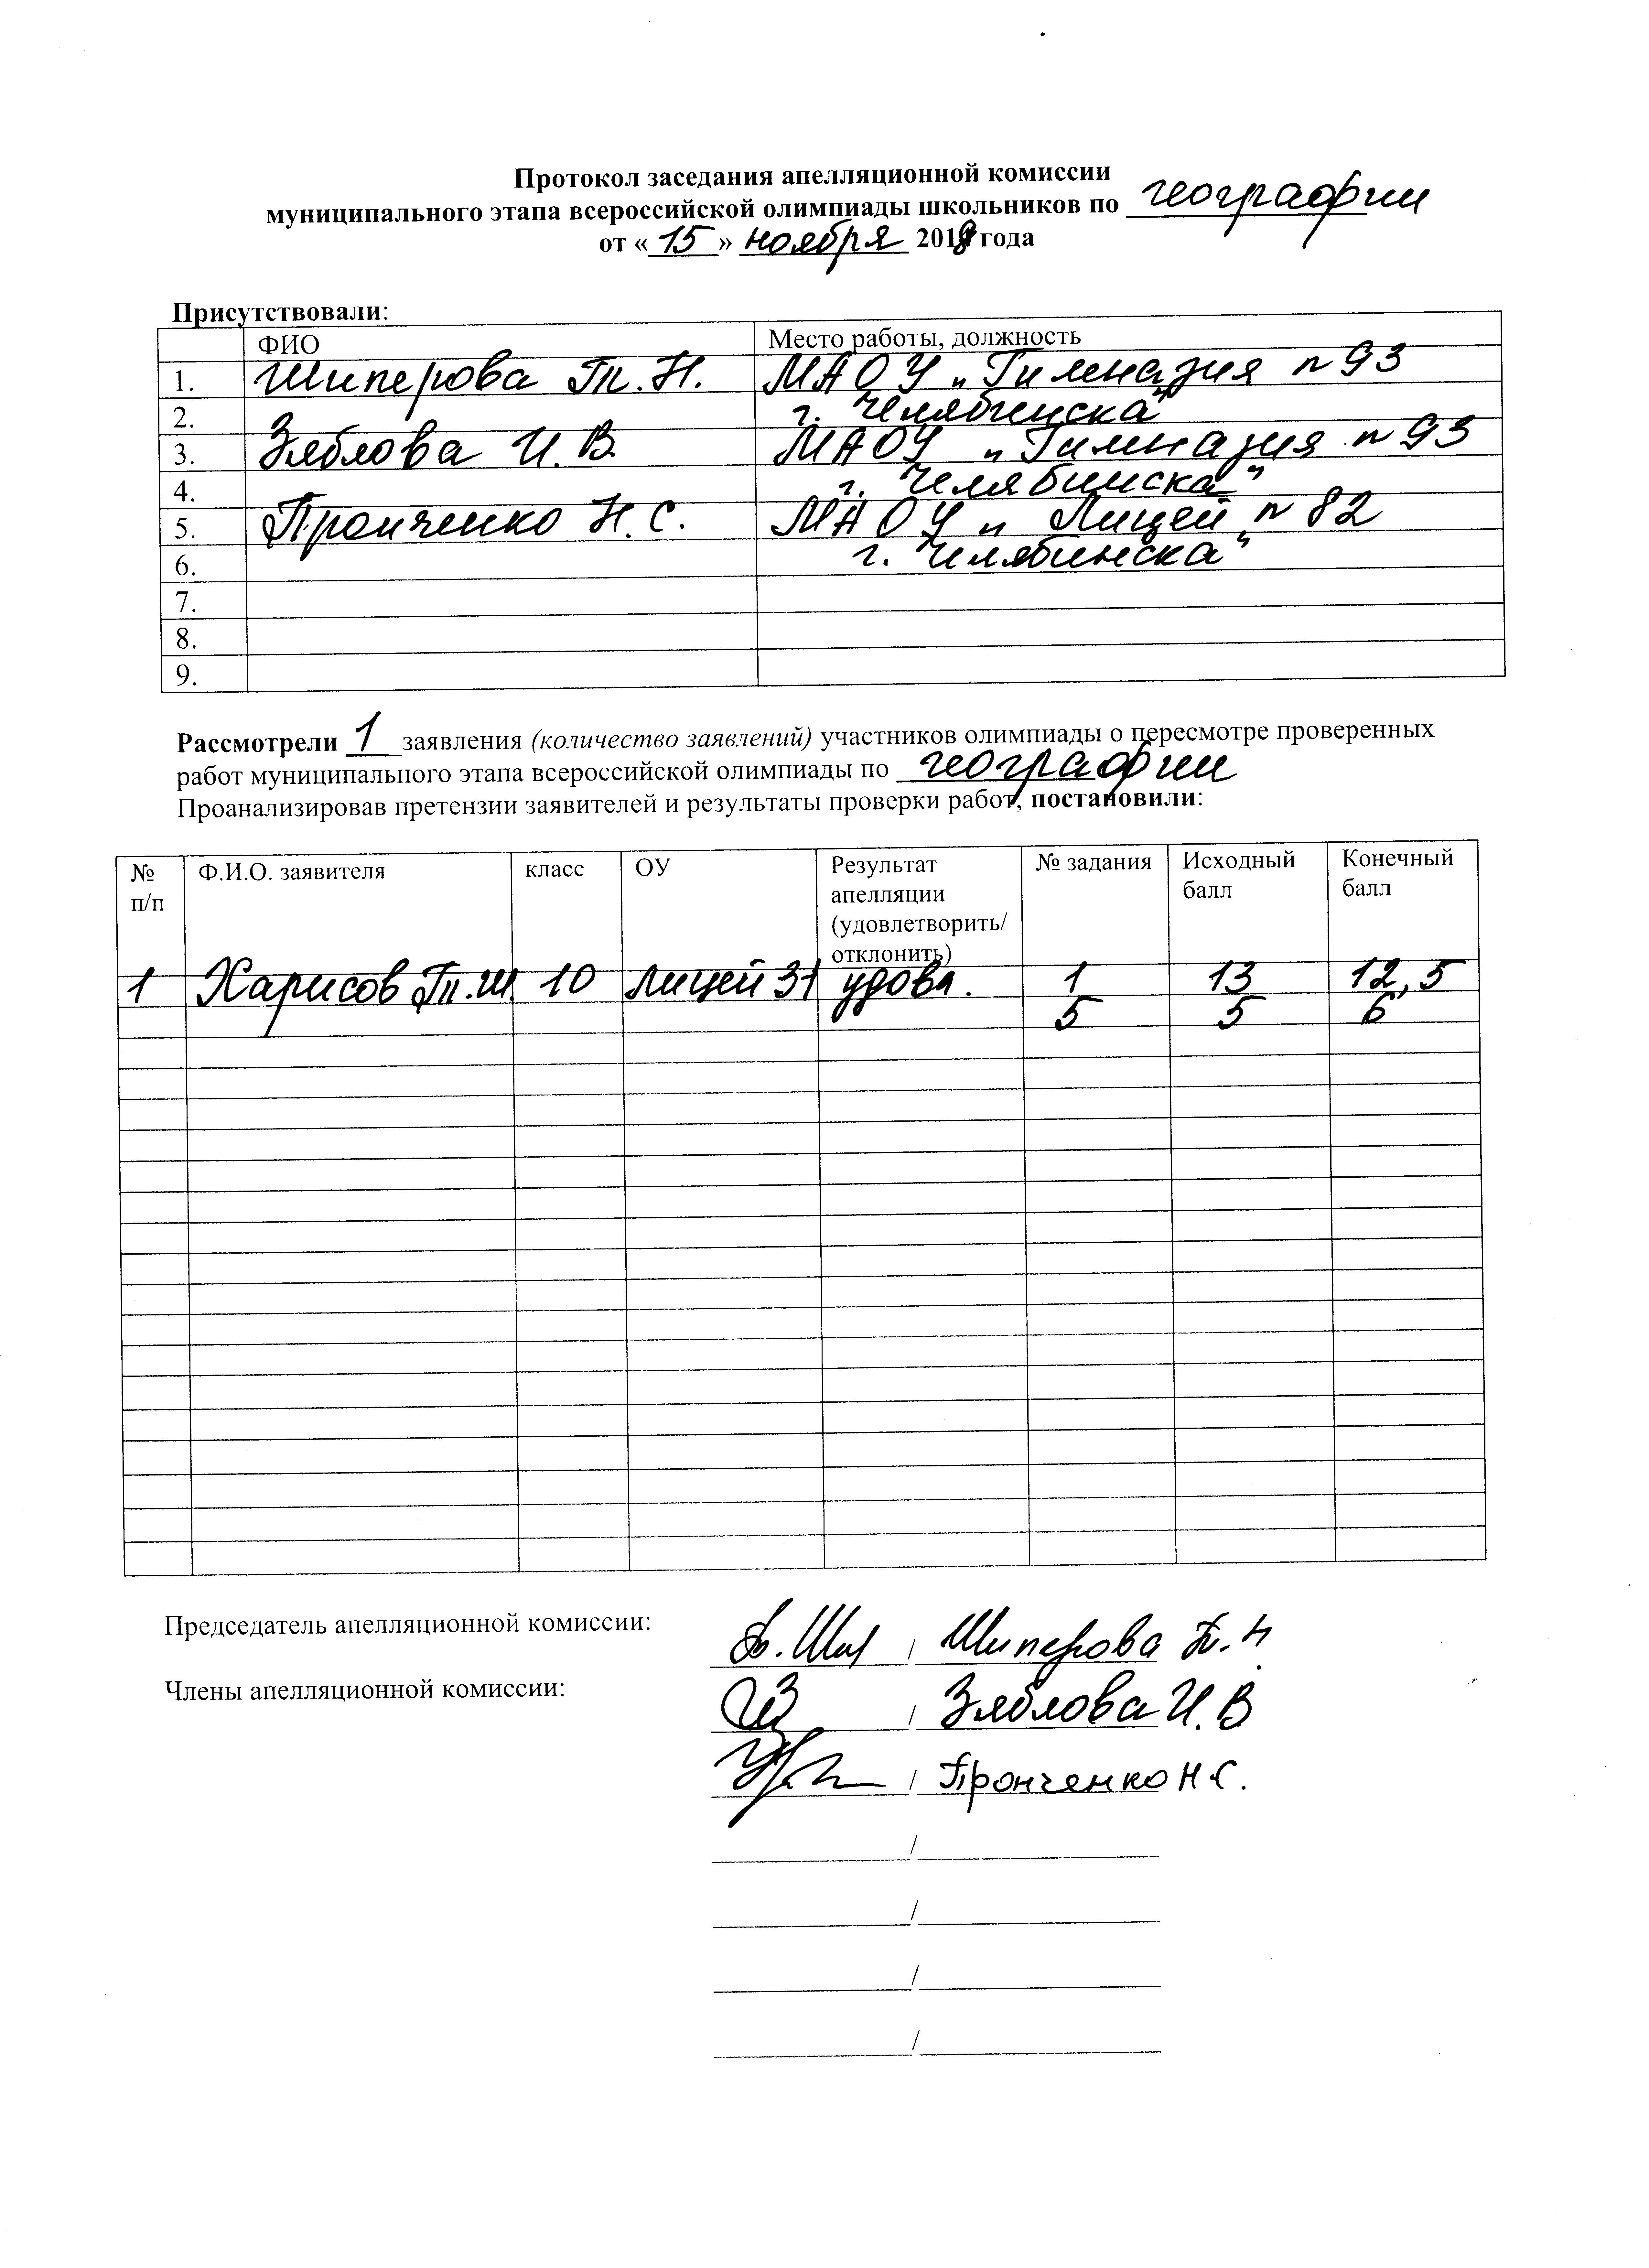 Протокол заседания апелляционной комиссии
муниципального этапа всероссийской олимпиады школьников по географии
от «15» ноября 2018 года
Присутствовали:
ФИО Место работы, должность
1. Шиперова Т.Н. МАОУ „Гимназия n 93
2. г. Челябинска"
3. Зяблова И.В. МАОУ „Гимназия n 93
4. г. Челябинска"
5. Пронченко Н.С. МАОУ „Лицей n 82
6. г. Челябинска"
7.
8.
9.
Рассмотрели 1 заявления (количество заявлений) участников олимпиады о пересмотре проверенных
работ муниципального этапа всероссийской олимпиады по географии
Проанализировав претензии заявителей и результаты проверки работ, постановили:
№ п/п Ф.И.О. заявителя класс ОУ Результат апелляции (удовлетворить/ отклонить) № задания Исходный балл Конечный балл
1 Харисов Т.Ш. 10 лицей 31 удовл. 1 13 12,5
5 5 6
Председатель апелляционной комиссии: / Шиперова Т.Н.
Члены апелляционной комиссии: / Зяблова И.В
/ Пронченко Н.С.
/
/
/
/